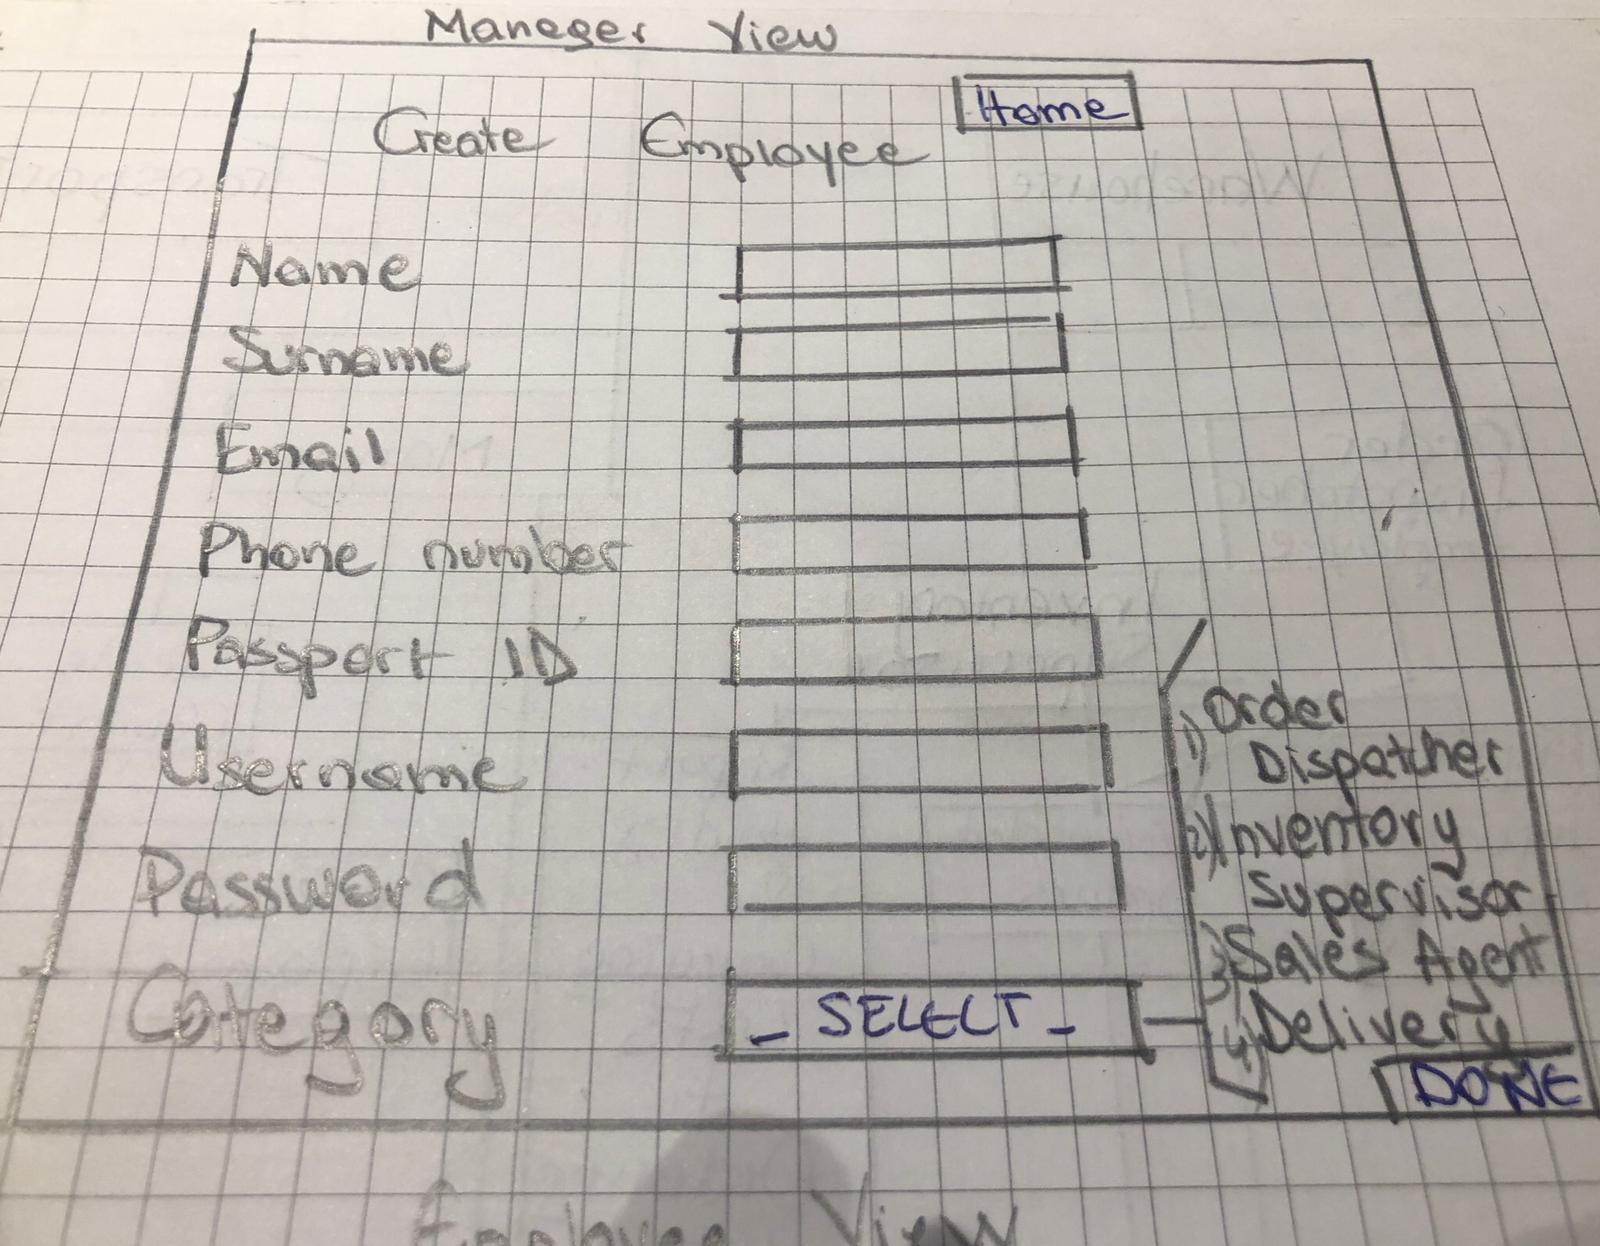 Maneger View
Home
Create Employee
Name
Surname
Email
Phone number
Passport ID
Username
Password
Category
_ SELECT _
1) Order
Dispatcher
2) Inventory
Supervisor
3) Sales Agent
4) Delivery
DONE
Employee View